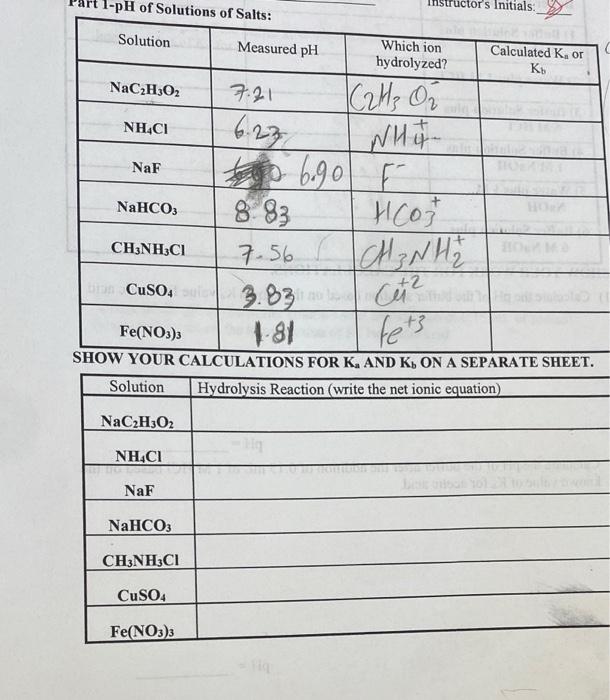 Part 1-pH of Solutions of Salts:
Instructor's Initials:
Solution Measured pH Which ion hydrolyzed? Calculated Kₐ or K_b
NaC₂H₃O₂ 7.21 C₂H₃O₂⁻
NH₄Cl 6.23 NH₄⁺
NaF 6.90 F⁻
NaHCO₃ 8.83 HCO₃⁺
CH₃NH₃Cl 7.56 CH₃NH₂⁺
CuSO₄ 3.83 Cu⁺²
Fe(NO₃)₃ 1.81 fe⁺³
SHOW YOUR CALCULATIONS FOR Kₐ AND K_b ON A SEPARATE SHEET.
Solution Hydrolysis Reaction (write the net ionic equation)
NaC₂H₃O₂
NH₄Cl
NaF
NaHCO₃
CH₃NH₃Cl
CuSO₄
Fe(NO₃)₃